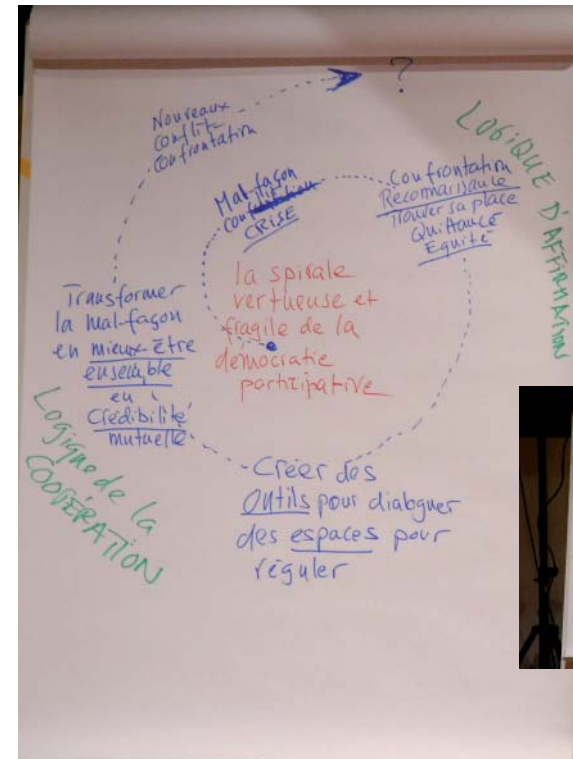 ?
Nouveaux
conflit
confrontation
LOGIQUE D'AFFIRMATION
Mal-façon
conflit
CRISE
Confrontation
Reconnaissance
trouver sa place
Quittance
Equité
la spirale
vertueuse et
fragile de la
démocratie
participative
Transformer
la mal-façon
en mieux être
ensemble
en
Crédibilité
mutuelle
Logique de la
COOPÉRATION
Créer des
Outils pour dialoguer
des espaces pour
réguler